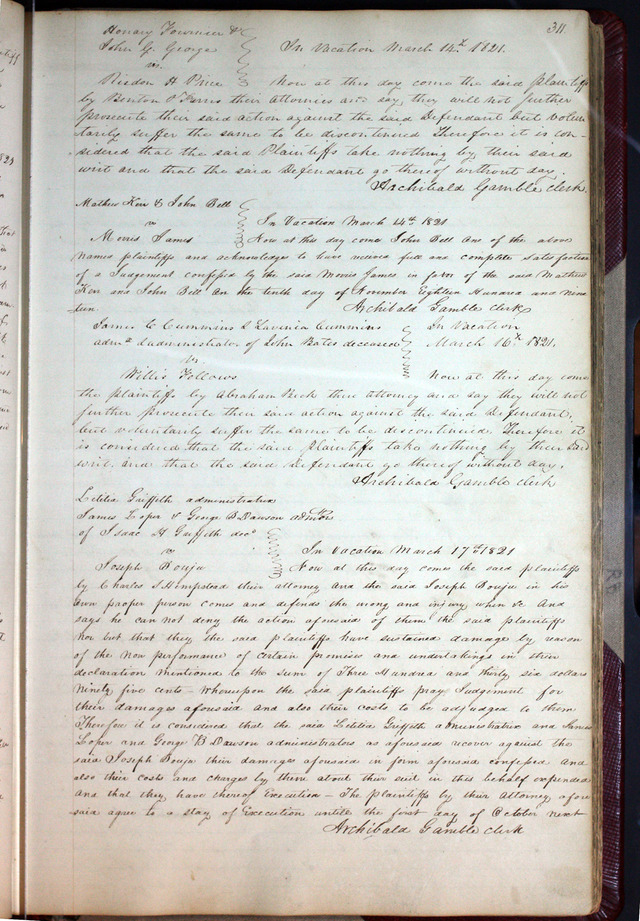 311
Honary Tournier &
John G. George In Vacation March 14th 1821.
vs.
Risdon H Price Now at this day come the said plaintiffs
by Benton & Farris their Attornies and say, they will not further
prosecute their said action against the said Defendant but volun
tarily suffer the same to be discontinued Therefore it is con-
sidered that the said Plaintiffs take nothing by their said
writ and that the said Defendant go thereof without day.
Archibald Gamble clerk
Mathew Kerr & John Bell
v In Vacation March 14th 1821
Morris James Now at this day come John Bell one of the above
names plaintiffs and acknowledges to have received full and complete satisfaction
of a Judgement confessed by the said Morris James in favor of the said Mathew
Kerr and John Bell on the tenth day of November Eighteen Hundred and Nine
teen. Archibald Gamble clerk
James C Cummins & Lavinia Cummins In Vacation
admx & administrator of John Bates deceased March 16th 1821.
vs
Willis Fellows Now at this day come
the plaintiffs by Abraham Beck their attorney and say they will not
further prosecute their said action against the said Defendant,
but voluntarily suffer the same to be discontinued Therefore it
is considered that the said plaintiffs take nothing by their said
writ and that the said Defendant go thereof without day.
Archibald Gamble clerk
Letitia Griffeth administratrix
James Loper & George B Dawson admtors
of Isaac H Griffeth decd
v In Vacation March 17th 1821
Joseph Bouju Now at this day comes the said plaintiffs
by Charles S. Hempstead their attorney and the said Joseph Bouju in his
own proper person comes and defends the wrong and injury when &c And
says he can not deny the action aforesaid of them the said plaintiffs
nor but that they the said plaintiffs have sustained damage by reason
of the non performance of certain promises and undertakings in their
declaration mentioned to the sum of Three Hundred and thirty six dollars
Ninety five cents – Whereupon the said plaintiffs pray Judgement for
their damages aforesaid and also their costs to be adjudged to them
Therefore it is considered that the said Letitia Griffeth administratrix and James
Loper and George B Dawson administrators as aforesaid recover against the
said Joseph Bouju their damages aforesaid in form aforesaid confessed and
also their costs and charges by them about their suit in this behalf expended
and that they have thereof Execution – The plaintiffs by their Attorney afore
said agree to a stay of Execution untill the first day of October next
Archibald Gamble clerk